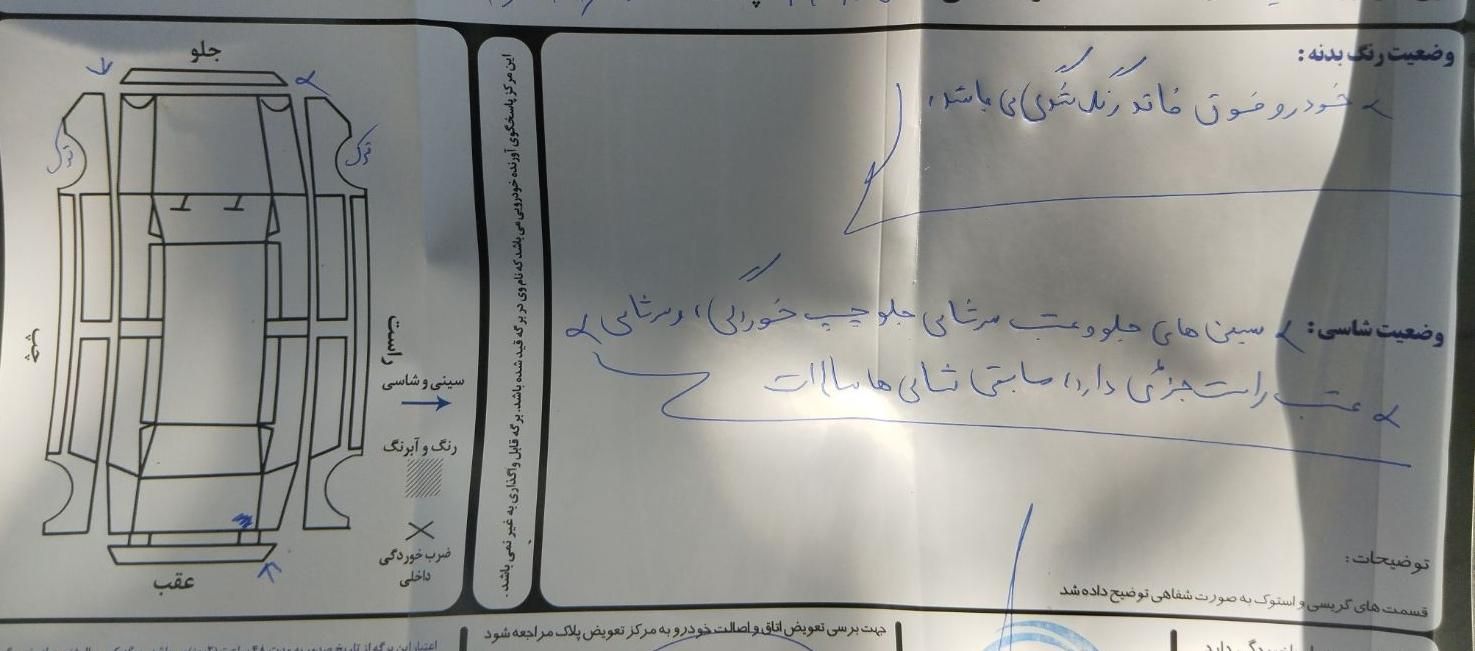 وضعیت رنگ بدنه:
خودرو فوق فاقد رنگ شدگی می باشد،
وضعیت شاسی:
سینی های جلو و عقب سرشاسی جلو چپ خوردگی، و سرشاسی
عقب راست جزئی دارد، مابقی شاسی ها سالم است
توضیحات:
قسمت های گریسی و استوک به صورت شفاهی توضیح داده شد
این مرکز پاسخگوی آورنده خودرویی می باشد که نام وی در برگه قید شده باشد. برگه قابل واگذاری به غیر نمی باشد.
جلو
ترک
ترک
چپ
راست
سینی و شاسی
رنگ و آبرنگ
ضرب خوردگی
داخلی
عقب
جهت بررسی تعویض اتاق و اصالت خودرو به مرکز تعویض پلاک مراجعه شود